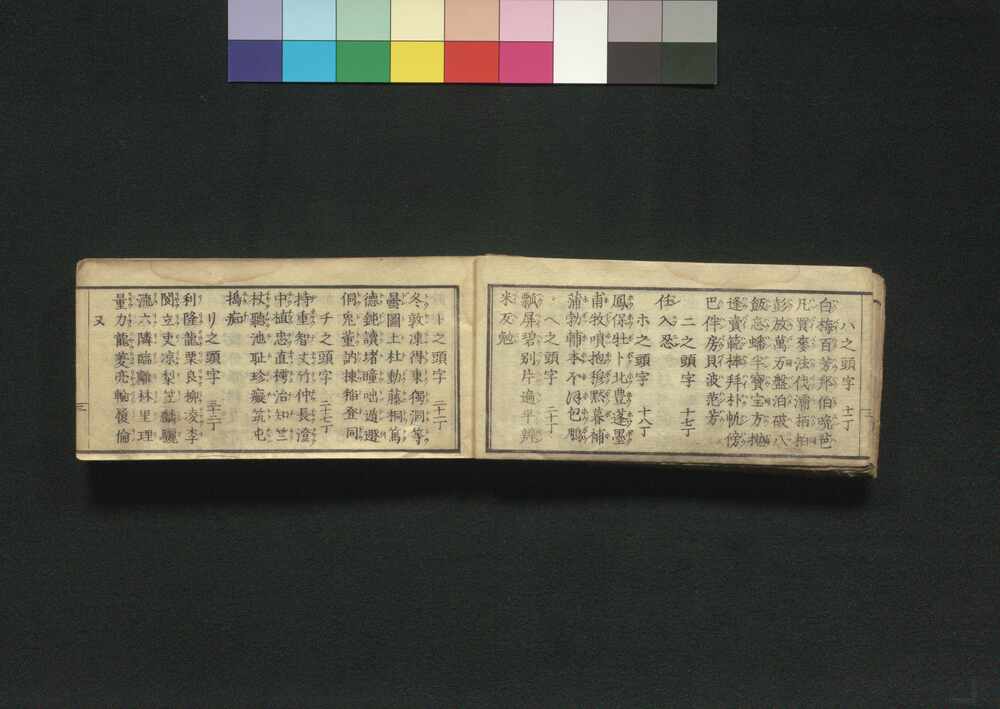 ハ之頭字 十一丁
白梅百芳那伯晩芭
凡買麥法伐瀰栢拍
彭放萬万盤泊破八
飯忘蟠半寳宝方搬
逢賣範棒拜朴帆傍
巴伴房貝波范芳
ニ之頭字 十七丁
任入忍
ホ之頭字 十八丁
鳳保牡卜北豊蓬墨
甫牧噴抱穆黙暮補
蒲勃輔本不 包鵬
ヘ之頭字 二十丁
瓢屏碧別片遍平
米友勉
ト之頭字 二十一丁
冬敦凍得東獨洞等
曇圖土杜動藤桐篤
德鈍讀堵瞳咄遁遯
侗兎董訥棟 登同
チ之頭字 二十七丁
持重智丈竹仲長澄
中植忠直樗治知竺
杖聽池耻珍癡筑屯
搗痴
リ之頭字 三十二丁
利隆龍栗良柳凌李
閔立吏凉梨笠麟驪
流六隣臨離林里理
量力龍菱亮輪 倫
ヌ
三